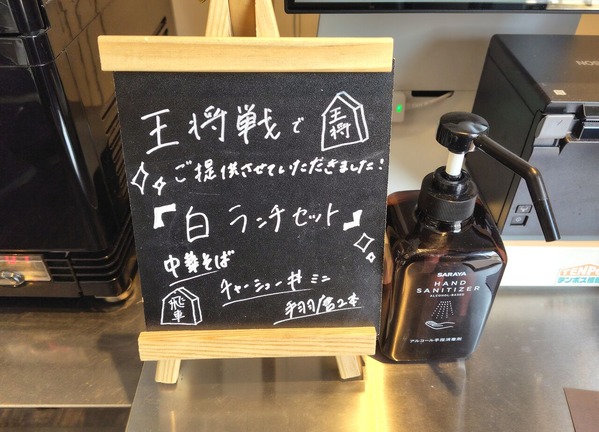 王将戦で
王将
ご提供させていただきました!
『白ランチセット』
中華そば
チャーシュー丼ミニ
手羽唐2本
飛車
SARAYA
HAND
SANITIZER
ALCOHOL-BASED
アルコール手指消毒剤
TENPO
テンポス